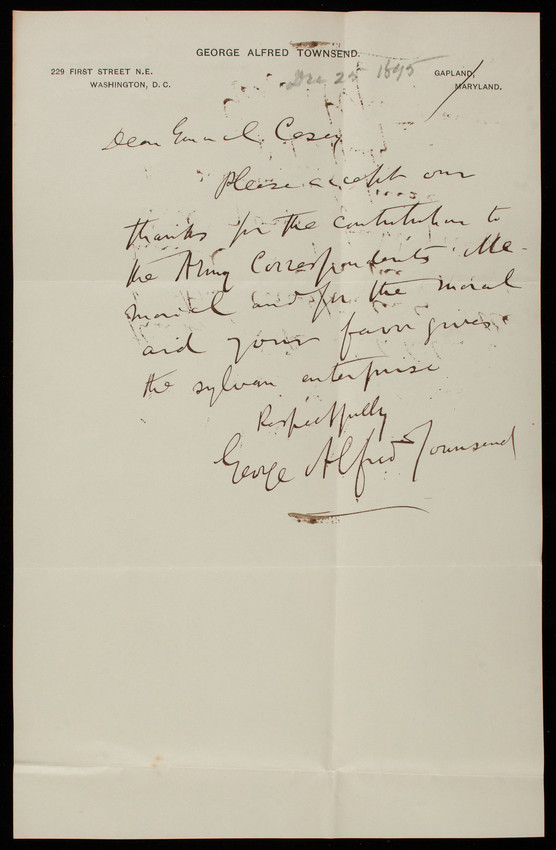 GEORGE ALFRED TOWNSEND.
229 FIRST STREET N.E.
WASHINGTON, D. C.
GAPLAND,
MARYLAND.
Dec 25 1895
Dear General Casey
Please accept our
thanks for the contribution to
the Army Correspondents Me-
morial and for the moral
aid your favor gives
the sylvan enterprise
Respectfully
George Alfred Townsend